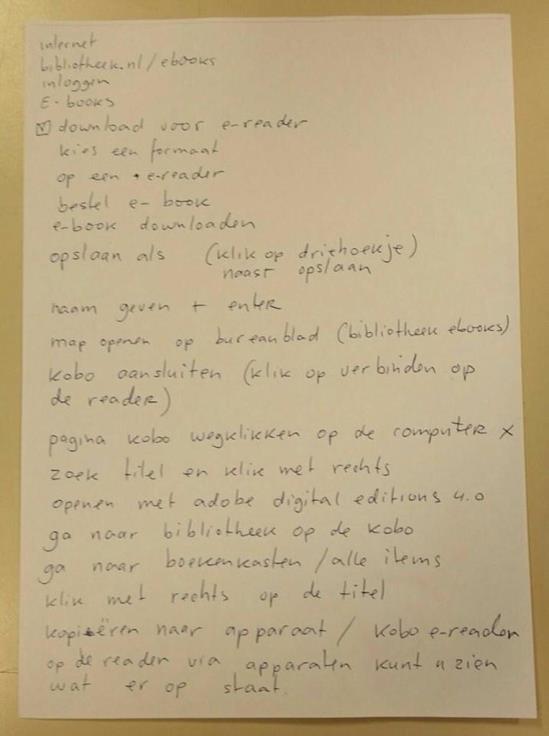 internet
bibliotheek.nl/ebooks
inloggen
E-books
☑ download voor e-reader
kies een formaat
op een e-reader
bestel e-book
e-book downloaden
opslaan als (klik op driehoekje)
naast opslaan
naam geven + enter
map openen op bureaublad (bibliotheek ebooks)
kobo aansluiten (klik op verbinden op
de reader)
pagina kobo wegklikken op de computer x
zoek titel en klik met rechts
openen met adobe digital editions 4.0
ga naar bibliotheek op de kobo
ga naar boekenkasten/alle items
klik met rechts op de titel
kopiëren naar apparaat / kobo e-reader
op de reader via apparaten kunt u zien
wat er op staat.